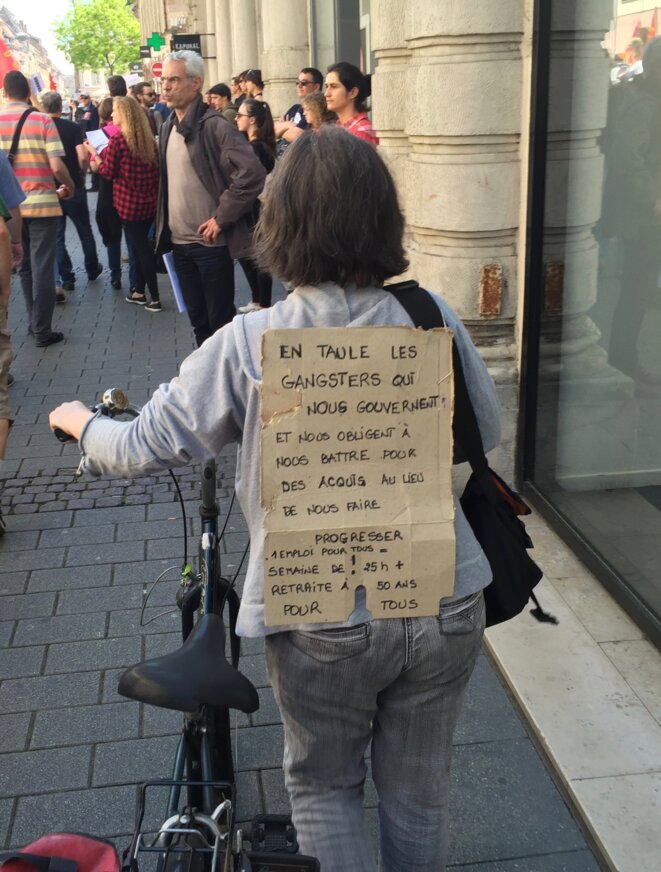 KAPORAL
EN TAULE LES
GANGSTERS QUI
NOUS GOUVERNENT!
ET NOUS OBLIGENT À
NOUS BATTRE POUR
DES ACQUIS AU LIEU
DE NOUS FAIRE
PROGRESSER
.1 EMPLOI POUR TOUS =
SEMAINE DE ! 25 h +
RETRAITE À 50 ANS
POUR TOUS